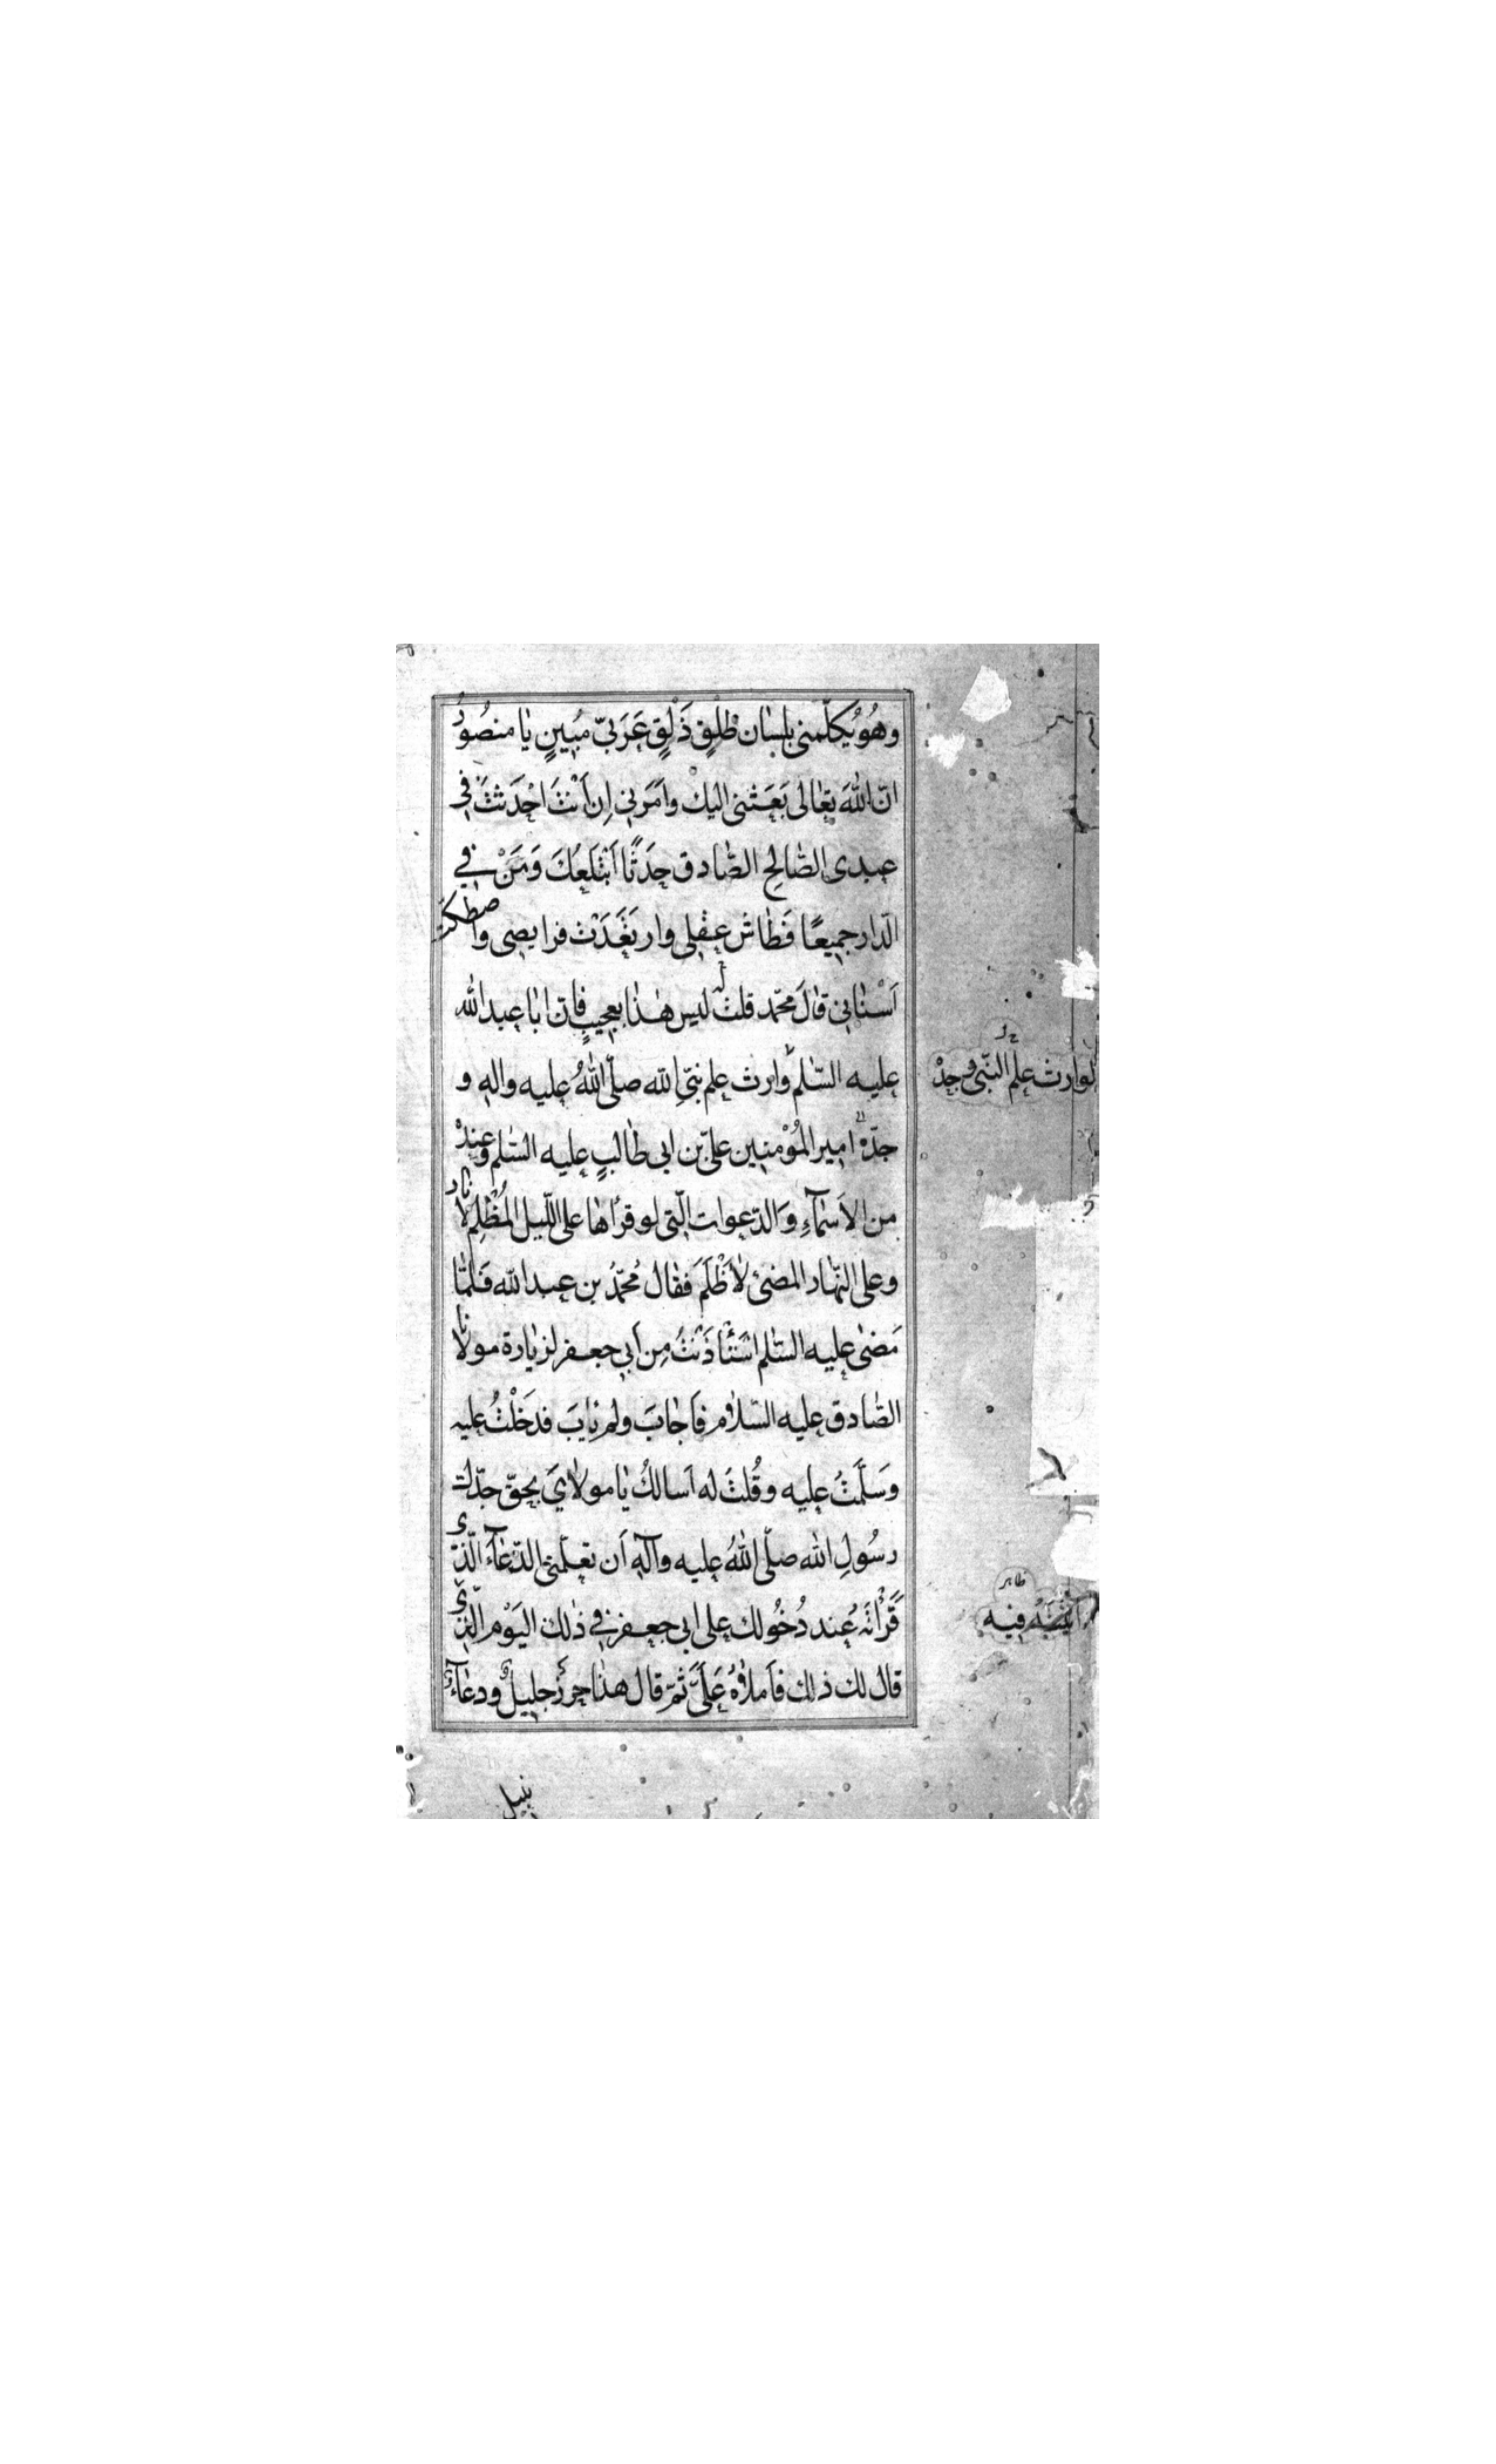 وهُو يُكلّمنى بلسان طَلِقٍ ذَلِقٍ عَرَبىّ مُبِينٍ يا منصُورُ
انّ اللهَ تعالى بَعَثنى اليكْ وامَرَنى اِن اَنتَ احْدَثتَ فى
عبدى الصّالحِ الصّادق حَدَثًا اَبْتَلَعُكَ وَمَنْ في
الدّار جميعًا فَطاش عقلى وارتعَدَتْ فرايصى واصطكّت
اَسْنانى قالَ محمّد قلتُ ليس هٰذا بعجيبٍ فانّ ابا عبد الله
عليه السّلم وارث علم نبىّ اللّه صلّى اللهُ عليه واله و
جدّهِ امير المُؤمنين علىّ بن ابى طالبٍ عليه السّلم وعندهْ
من الاَسْمآءِ وَالدّعوات الّتى لو قرأها على اللّيل المُظلِم لانار
وعلى النّهار المضىئ لاَظْلَمَ فقال مُحمّدُ بن عبد اللّه فلمّا
مَضىٰ عليه السّلم اسْتَأْذَنْتُ مِن اَبى جعفر لزيارة مولانا
الصّادق عليه السّلام فاَجابَ ولم يابَ فدَخَلْتُ عليه
وَسَلَّمتُ عليه وقُلتُ له اَسالكُ يا مولاىَ بحقّ جدّك
رسُولِ الله صلّى اللهُ عليه وآله اَن تعلّمنى الدّعآءَ الّذى
قَرْأتَهُ عند دُخُولك على ابى جعفر فى ذلك اليَوْم الّذى
قال لك ذلك فاَملاهُ عَلَىَّ ثمّ قال هذا حرز جليلٌ ودعآءٌ
لوارث علم النّبىّ وجدّه
ظاهر
فيه
نبيل